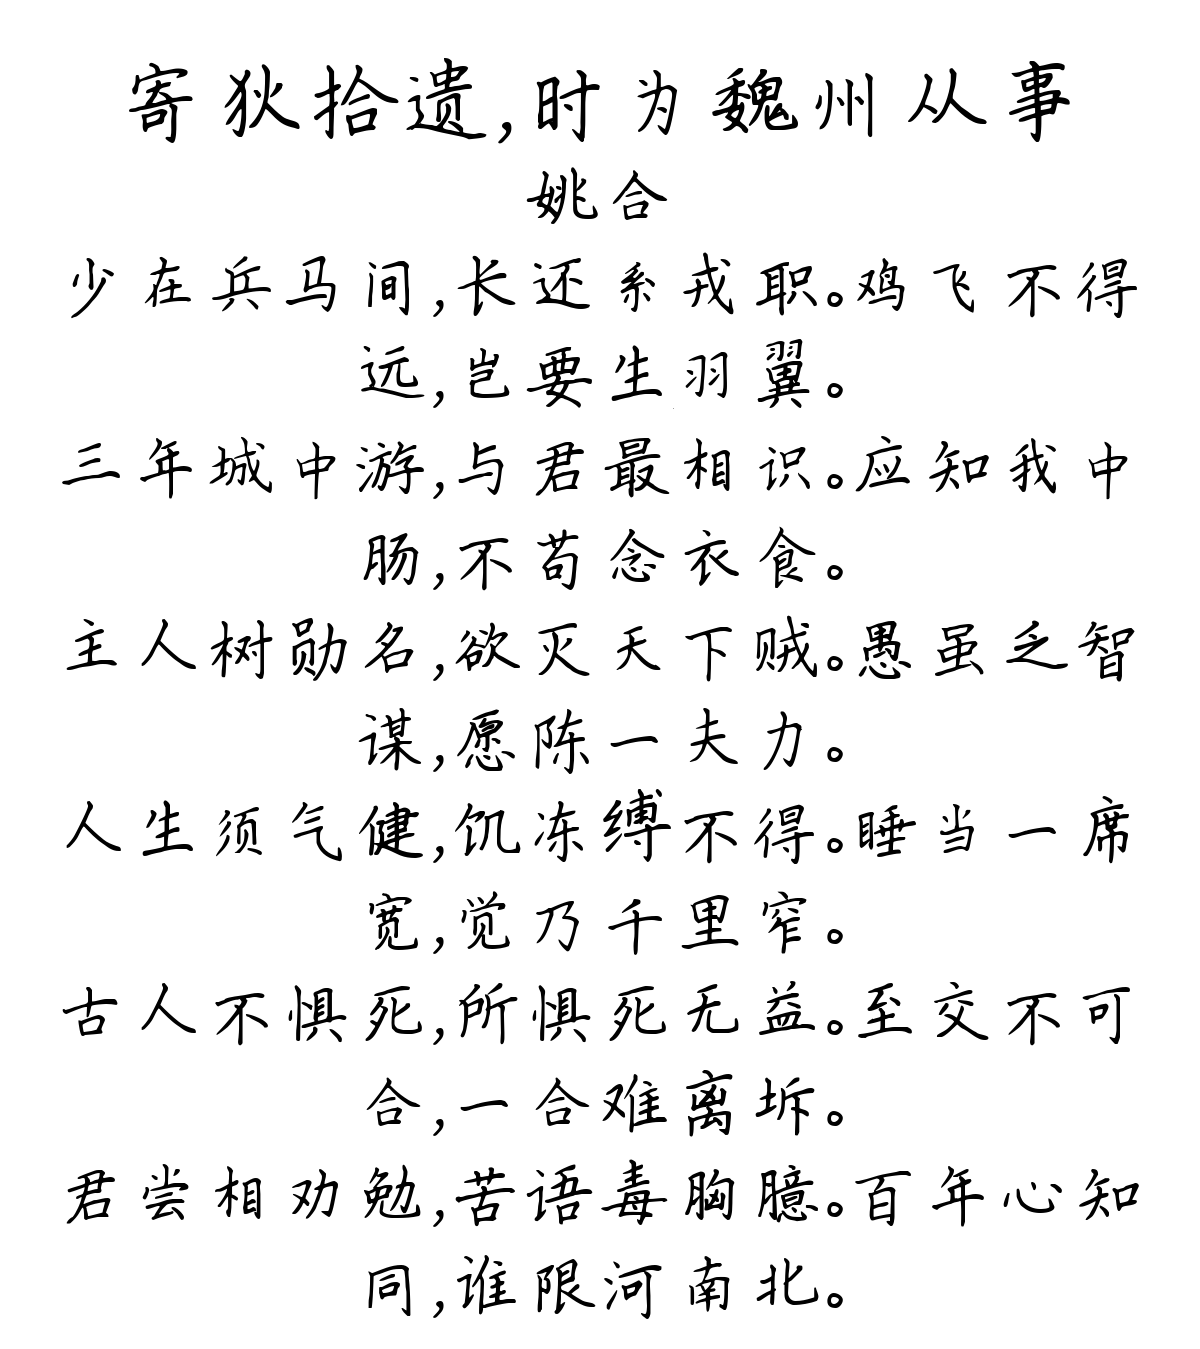 寄狄拾遗,时为魏州从事
姚合
少在兵马间,长还系戎职。鸡飞不得
远,岂要生羽翼。
三年城中游,与君最相识。应知我中
肠,不苟念衣食。
主人树勋名,欲灭天下贼。愚虽乏智
谋,愿陈一夫力。
人生须气健,饥冻缚不得。睡当一席
宽,觉乃千里窄。
古人不惧死,所惧死无益。至交不可
合,一合难离坼。
君尝相劝勉,苦语毒胸臆。百年心知
同,谁限河南北。